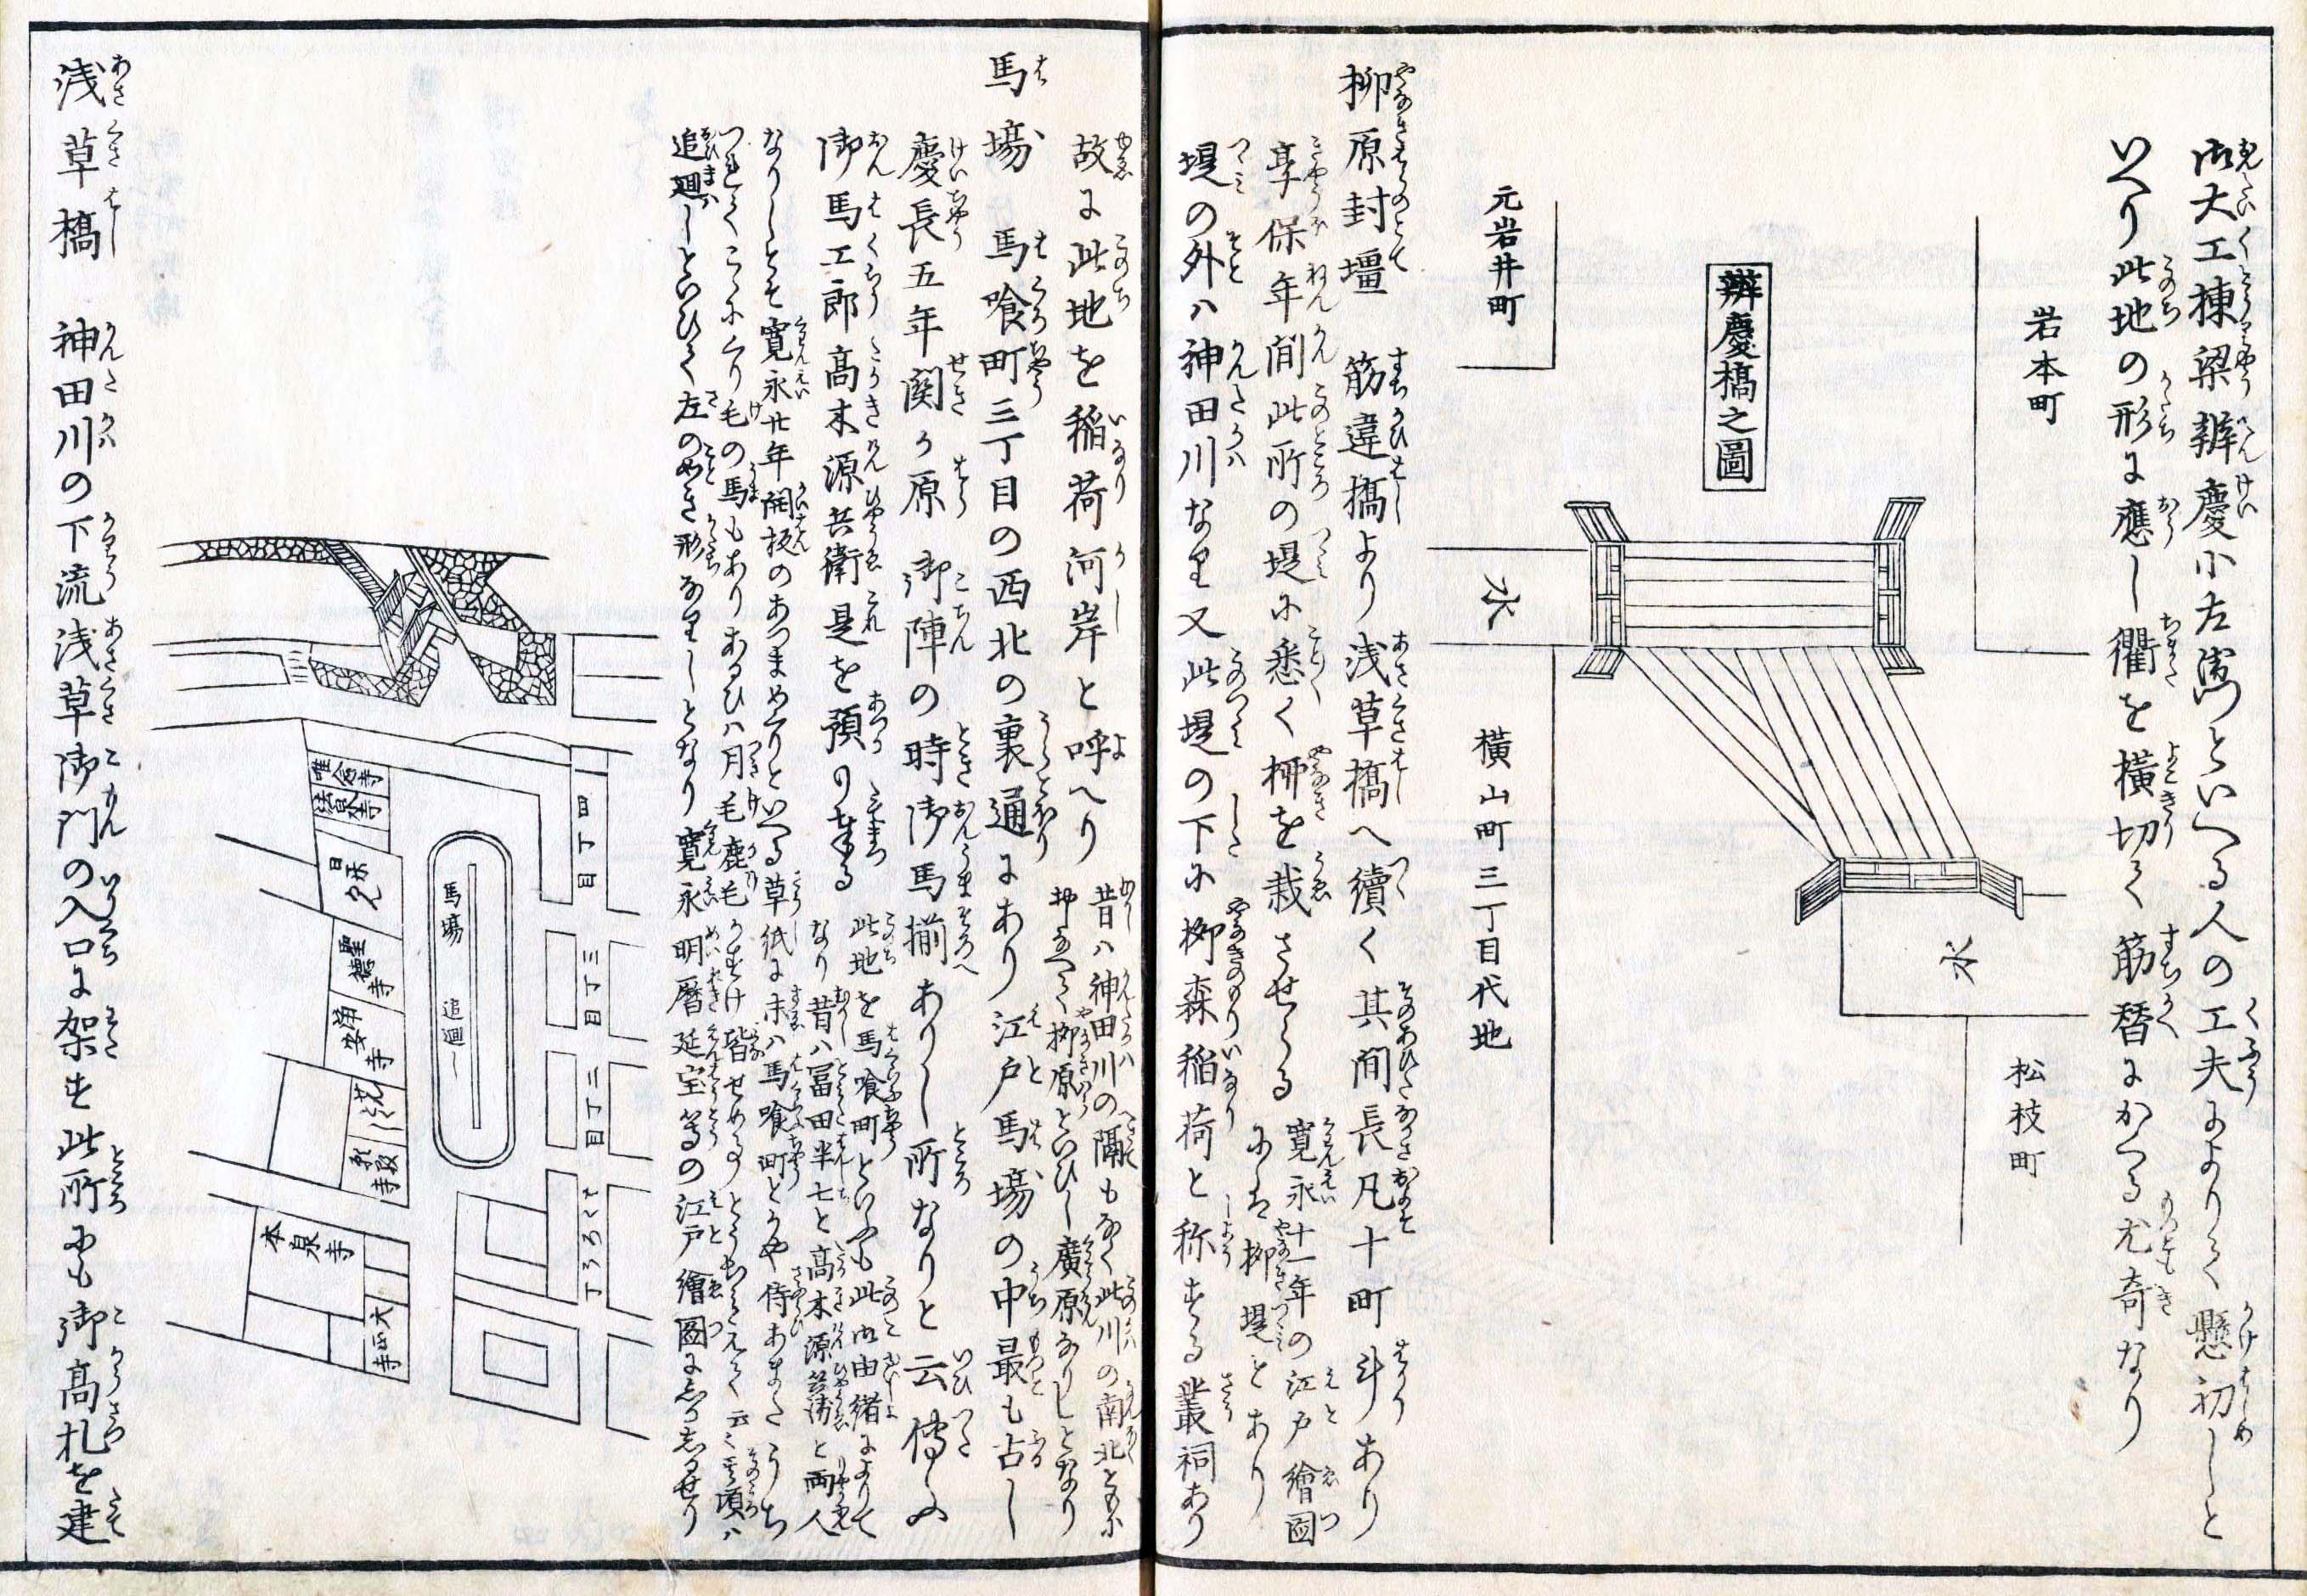 御大工棟梁辨慶小左衛門といへる人の工夫によりて懸初しと
いへり此地の形に應し衢を横切て筋替にかくる尤奇なり
岩本町
辨慶橋之圖
元岩井町
水
横山町三丁目代地
水
松枝町
柳原封壃 筋違橋より浅草橋へ續く其間長凡十町斗あり
享保年間此所の堤に悉く柳を栽させらる
寛永十一年の江戸繪図
にも柳堤とあり
堤の外ハ神田川なり又此堤の下に柳森稲荷と称する叢祠あり
故に此地を稲荷河岸と呼へり
昔ハ神田川の隔もなく此川の南北ともに
柳原といひし廣原なりしとなり
馬場 馬喰町三丁目の西北の裏通にあり江戸馬場の中最も古し
慶長五年関ヶ原御陣の時御馬揃ありし所なりと云傳ふ
御馬工郎高木源兵衛是を預り奉る
此地を馬喰町といふも此御由緒によりて
なり昔ハ冨田半七と高木源兵衛と両人
なりしとそ寛永廿年開板のあつまめくりといへる草紙に末ハ馬喰町とかや侍あまたうち
つれてこゝにくり毛の馬もありあるひハ月毛鹿毛かすけ皆せめる
云々其頃ハ
追廻しといひて左のめき形なりしとなり寛永明暦延宝等の江戸繪図にしかしるせり
四丁目
三丁目
二丁目
馬場 追廻し
唯念寺
法泉寺
日外
聖徳寺
安浄寺
本泉寺
浅草橋 神田川の下流浅草御門の入口に架す此所にも御高札を建